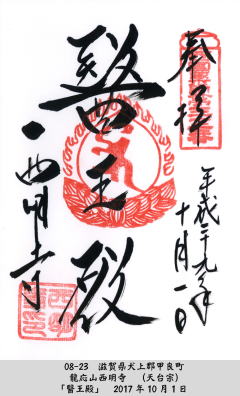 奉拝
平成二十九年
十月一日
醫王殿
西明寺
08-23　滋賀県犬上郡甲良町
龍応山西明寺　（天台宗）
「醫王殿」　2017年10月1日